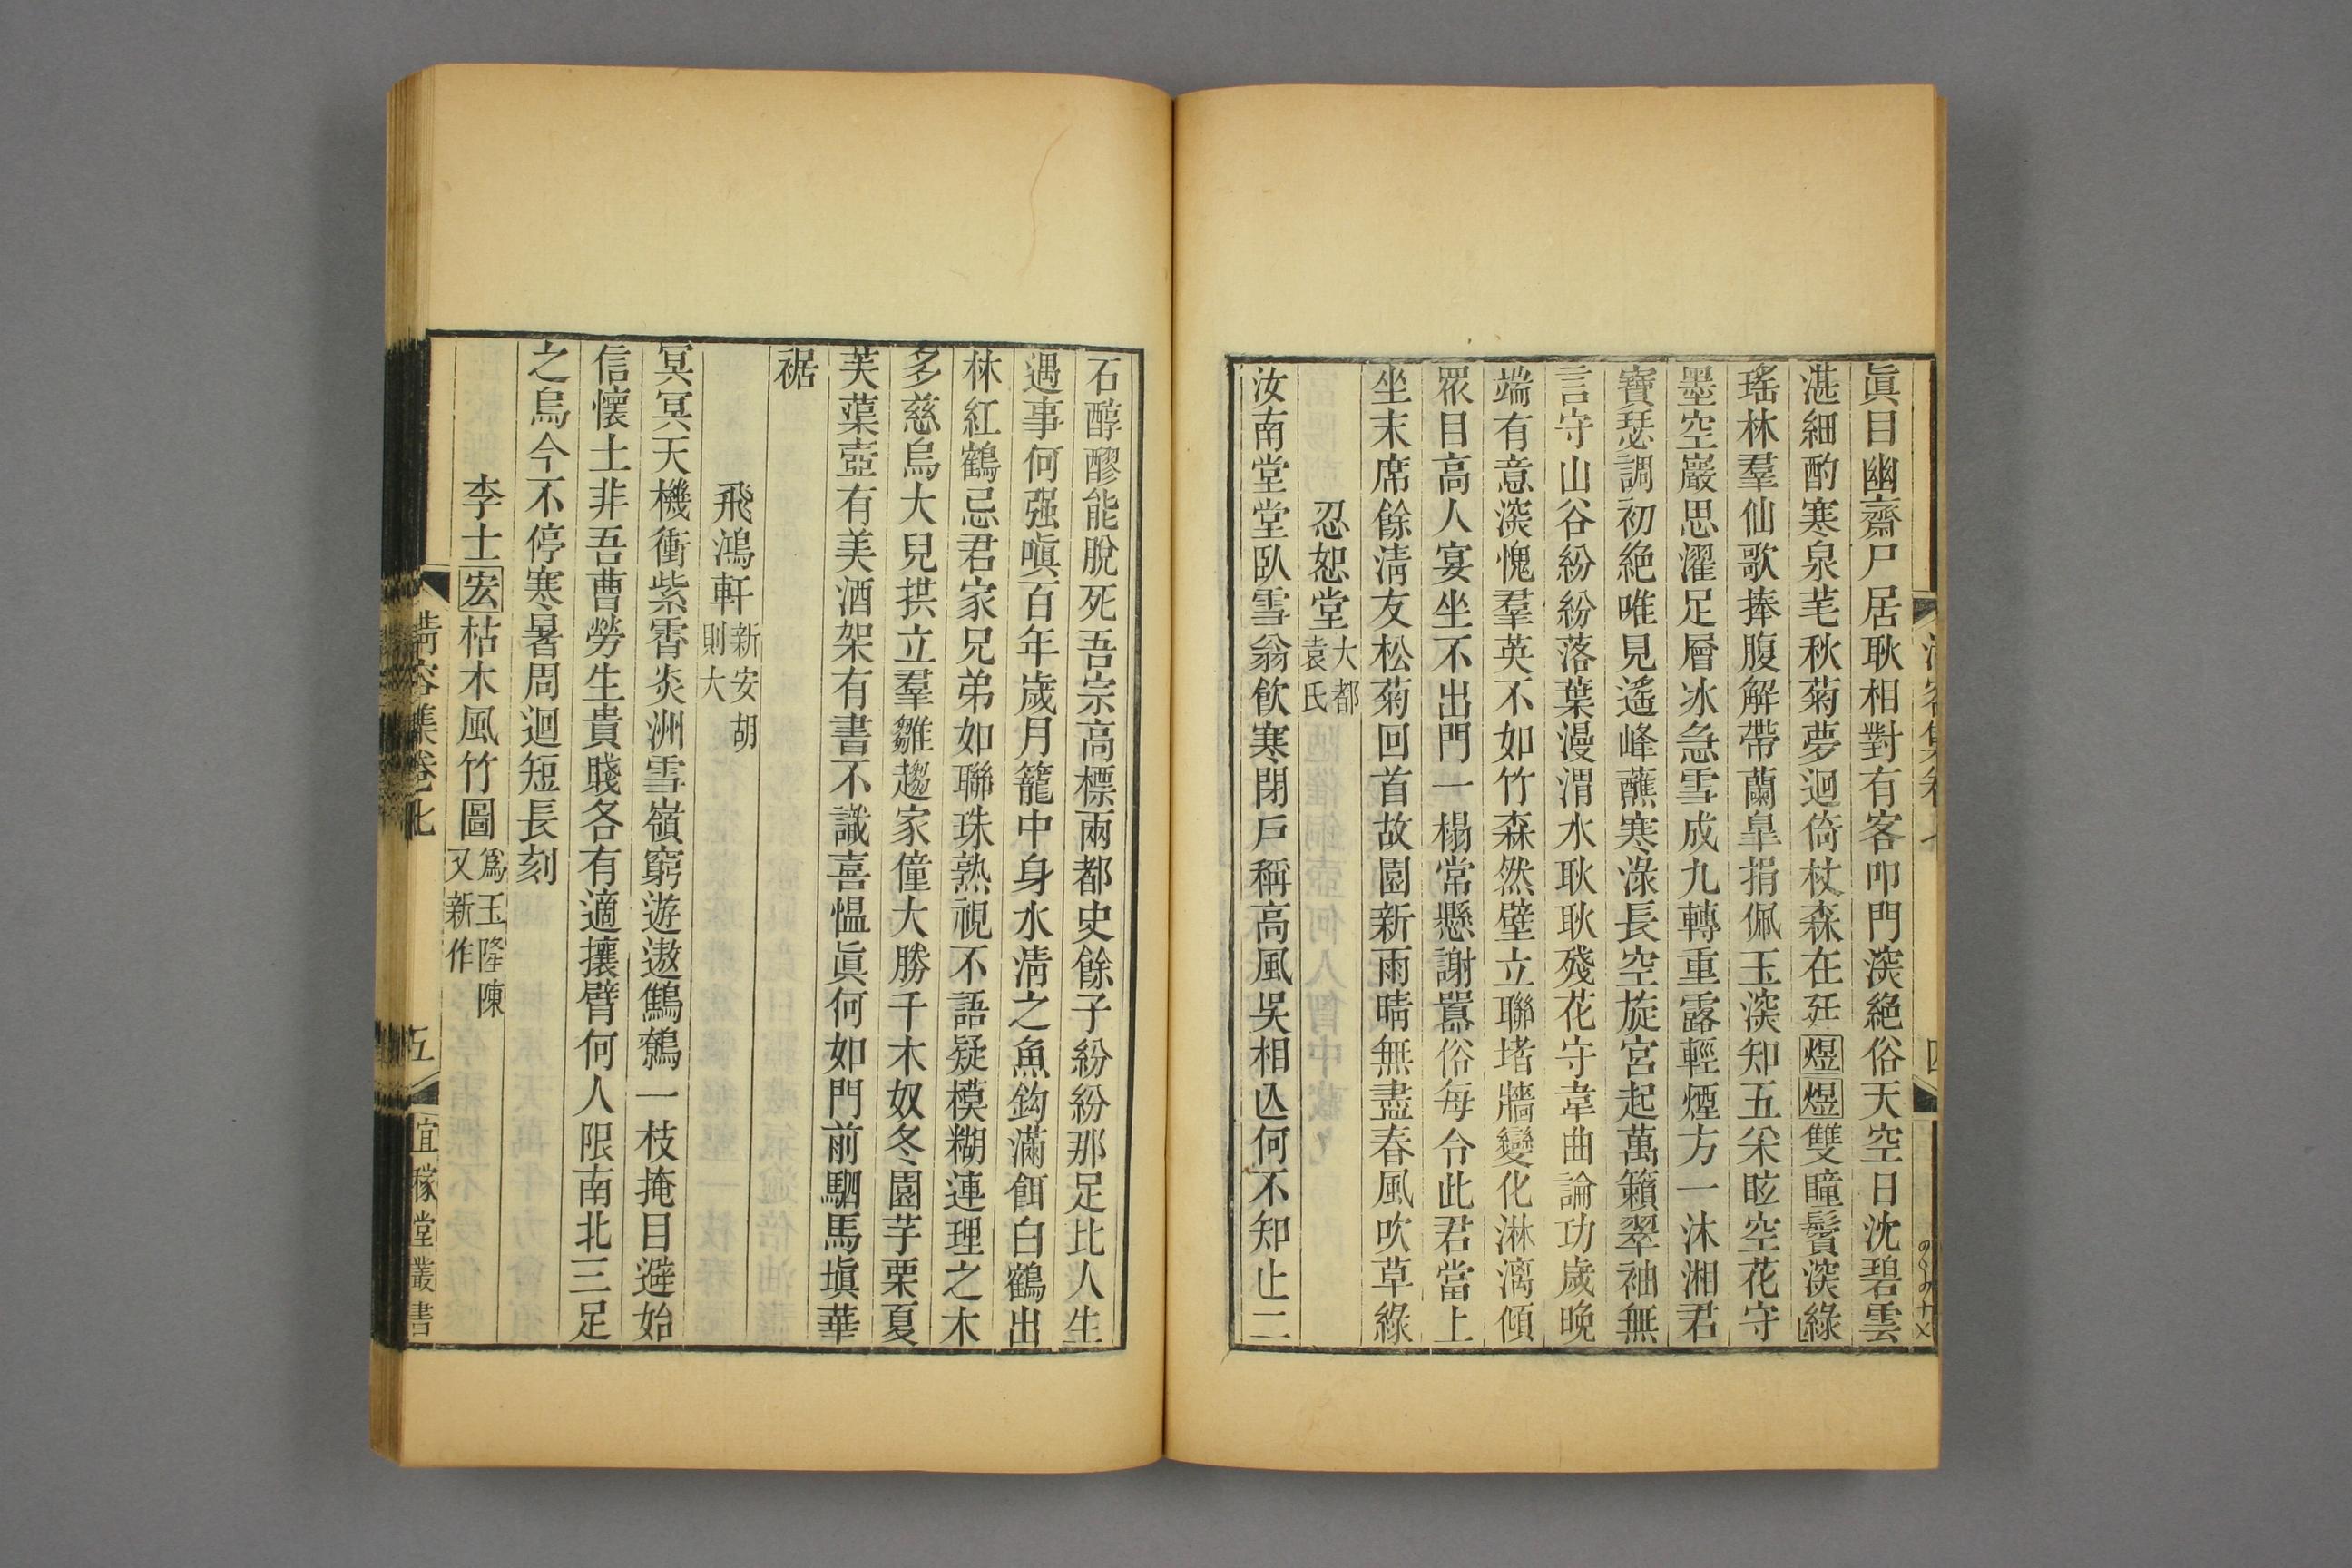 眞目幽齋尸居耿相對有客叩門深絕俗天空日沈碧雲
湛細酌寒泉芼秋菊夢迴倚杖森在廷煜煜雙瞳鬢深綠
瑤林羣仙歌捧腹解帶蘭皐捐佩玉深知五采眩空花守
墨空巖思濯足層冰急雪成九轉重露輕煙方一沐湘君
寶瑟調初絕唯見遙峰蘸寒淥長空旋宮起萬籟翠袖無
言守山谷紛紛落葉漫渭水耿耿殘花守韋曲論功歲晚
端有意深愧羣英不如竹森然壁立聯堵牆變化淋漓傾
眾目高人宴坐不出門一榻常懸謝囂俗每令此君當上
坐末席餘淸友松菊回首故園新雨晴無盡春風吹草綠
忍恕堂大都袁氏
汝南堂堂臥雪翁飮寒閉戶稱高風吳相亾何不知止二
石醇醪能脫死吾宗高標兩都史餘子紛紛那足比人生
遇事何强嗔百年歲月籠中身水淸之魚鈎滿餌白鶴出
林紅鶴忌君家兄弟如聯珠熟視不語疑模糊連理之木
多慈烏大兒拱立羣雛趨家僮大勝千木奴冬園芋栗夏
芙蕖壺有美酒架有書不識喜慍眞何如門前駟馬塡華
裾
飛鴻軒新安胡則大
冥冥天機衝紫霄炎洲雪嶺窮遊遨鷦鷯一枝掩目遊始
信懷土非吾曹勞生貴賤各有適攘臂何人限南北三足
之烏今不停寒暑周迴短長刻
李士宏枯木風竹圖爲玉隆陳又新作
淸容集卷七
五
宜稼堂叢書